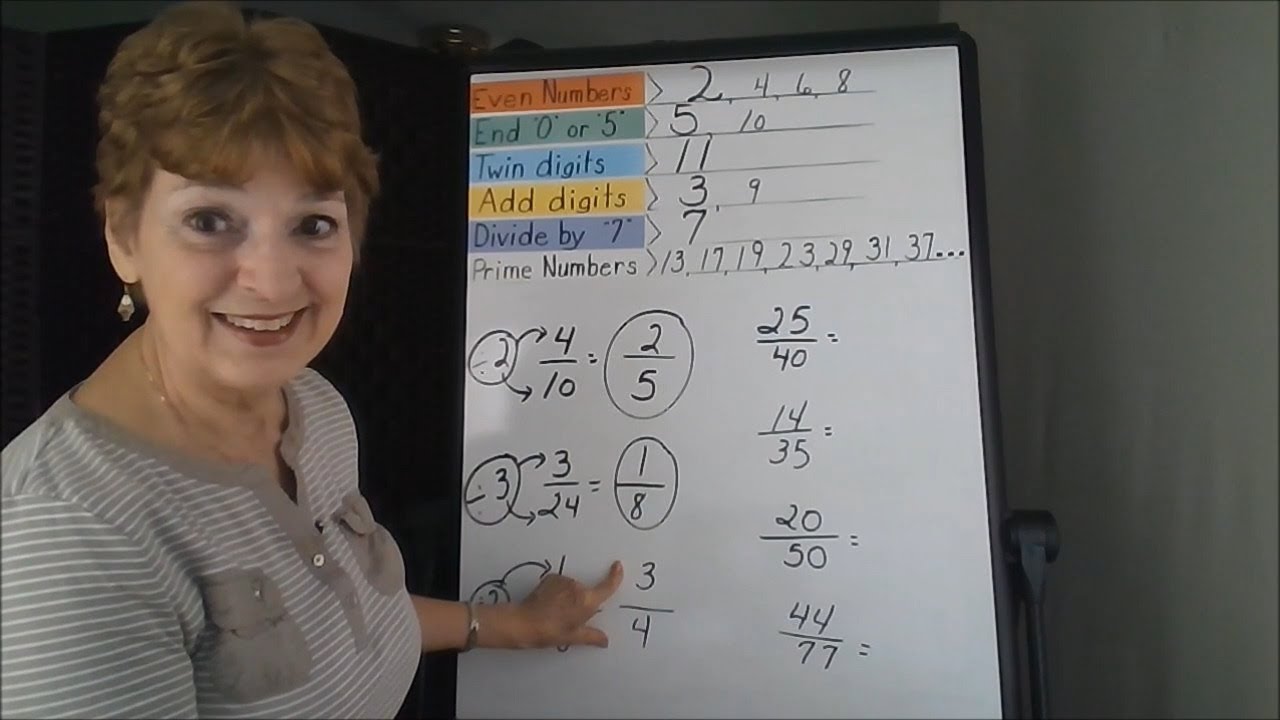 Even Numbers > 2, 4, 6, 8
End "0" or "5" > 5, 10
Twin digits > 11
Add digits > 3, 9
Divide by "7" > 7
Prime Numbers > 13, 17, 19, 23, 29, 31, 37...
÷2 4/10 = 2/5
÷3 3/24 = 1/8
÷2 3/4
25/40 =
14/35 =
20/50 =
44/77 =